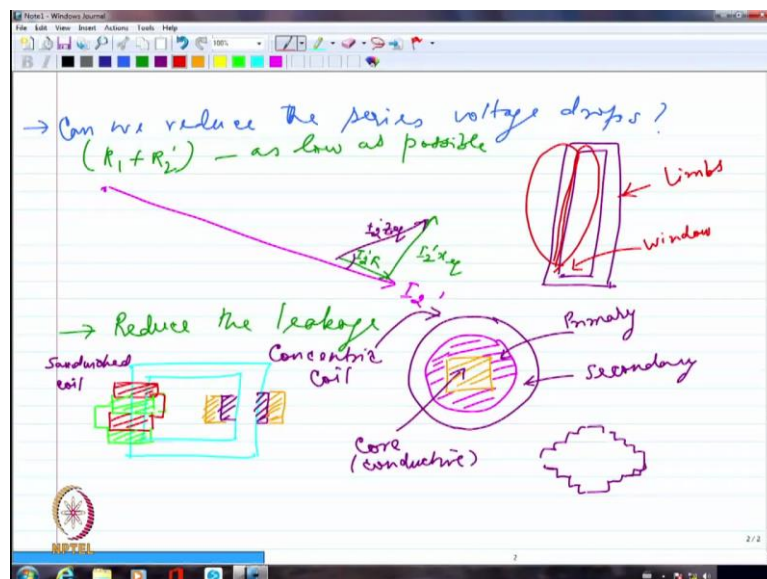 Note1 - Windows Journal
File Edit View Insert Actions Tools Help
100%
B I
→ Can we reduce the series voltage drops?
(R₁ + R₂') – as low as possible
Limbs
window
I₂'Zeq
I₂'R
I₂'Xeq
I₂'
→ Reduce the leakage
Sandwiched
coil
Concentric
Coil
Primary
Secondary
Core
(conductive)
NPTEL
2/2
2